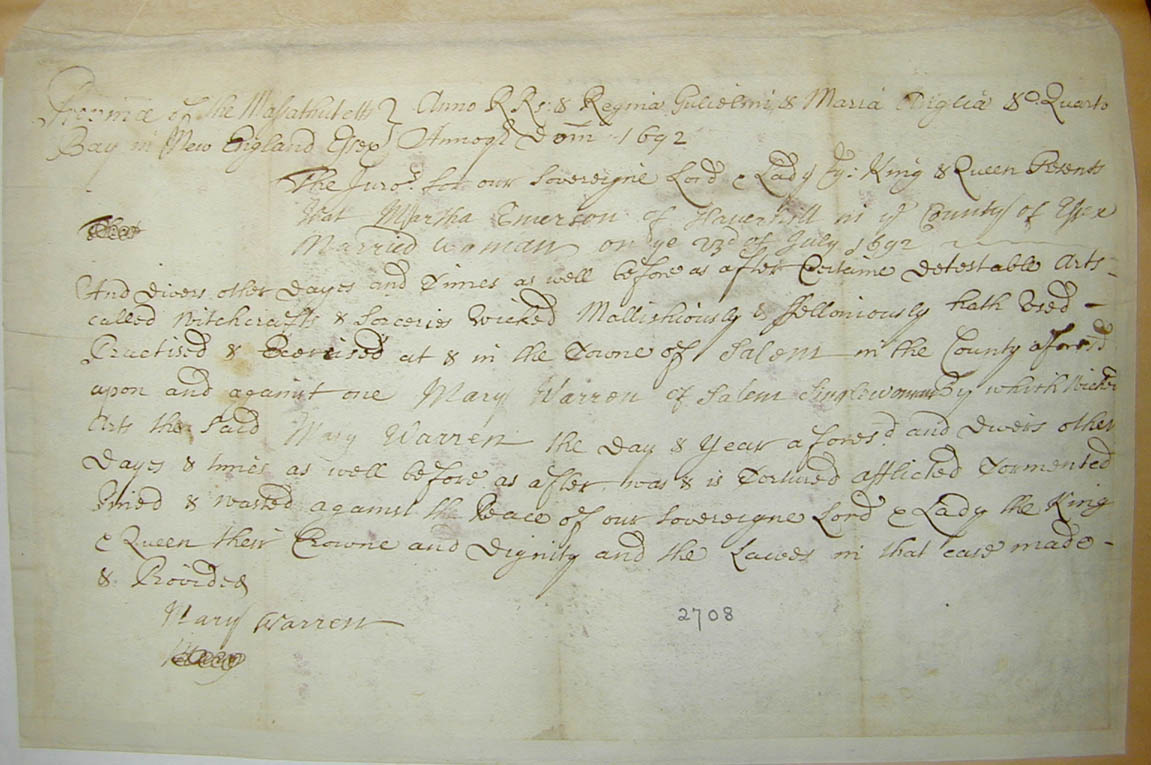 Provinc̄e of the Masathusetts } Anno R Rs: & Regina Gulielmi & Maria Angliæ &c Quarto
Bay in New England Essex } Annoqe Dom̄ 1692
The Juros. for our Sovereigne Lord & Lady ye: King & Queen Presents
That Martha Emerson of Haverhill in ye County of Essex
Married woman on ye 23d of July 1692
And divers other dayes and Times as well before as after Certaine detestable Arts
called Witchcrafts & Sorceries Wicked Mallishiously & Felloniously hath Vsed
Practised & Exercised at & in the Towne of Salem in the County aforesd
upon and against one Mary Warren of Salem Singlewoman by which Wicked
Arts the said Mary Warren the day & Year aforesd and divers other
dayes & times as well before as after was & is Tortured afflicted Tormented
Pined & wasted against the Peace of our Sovereigne Lord & Lady the King
& Queen their Crowne and Dignity and the Lawes in that case made
& Provided
Mary Warren
2708